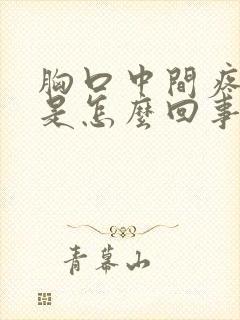 胸口中間疼
是怎麼回事
青幕山